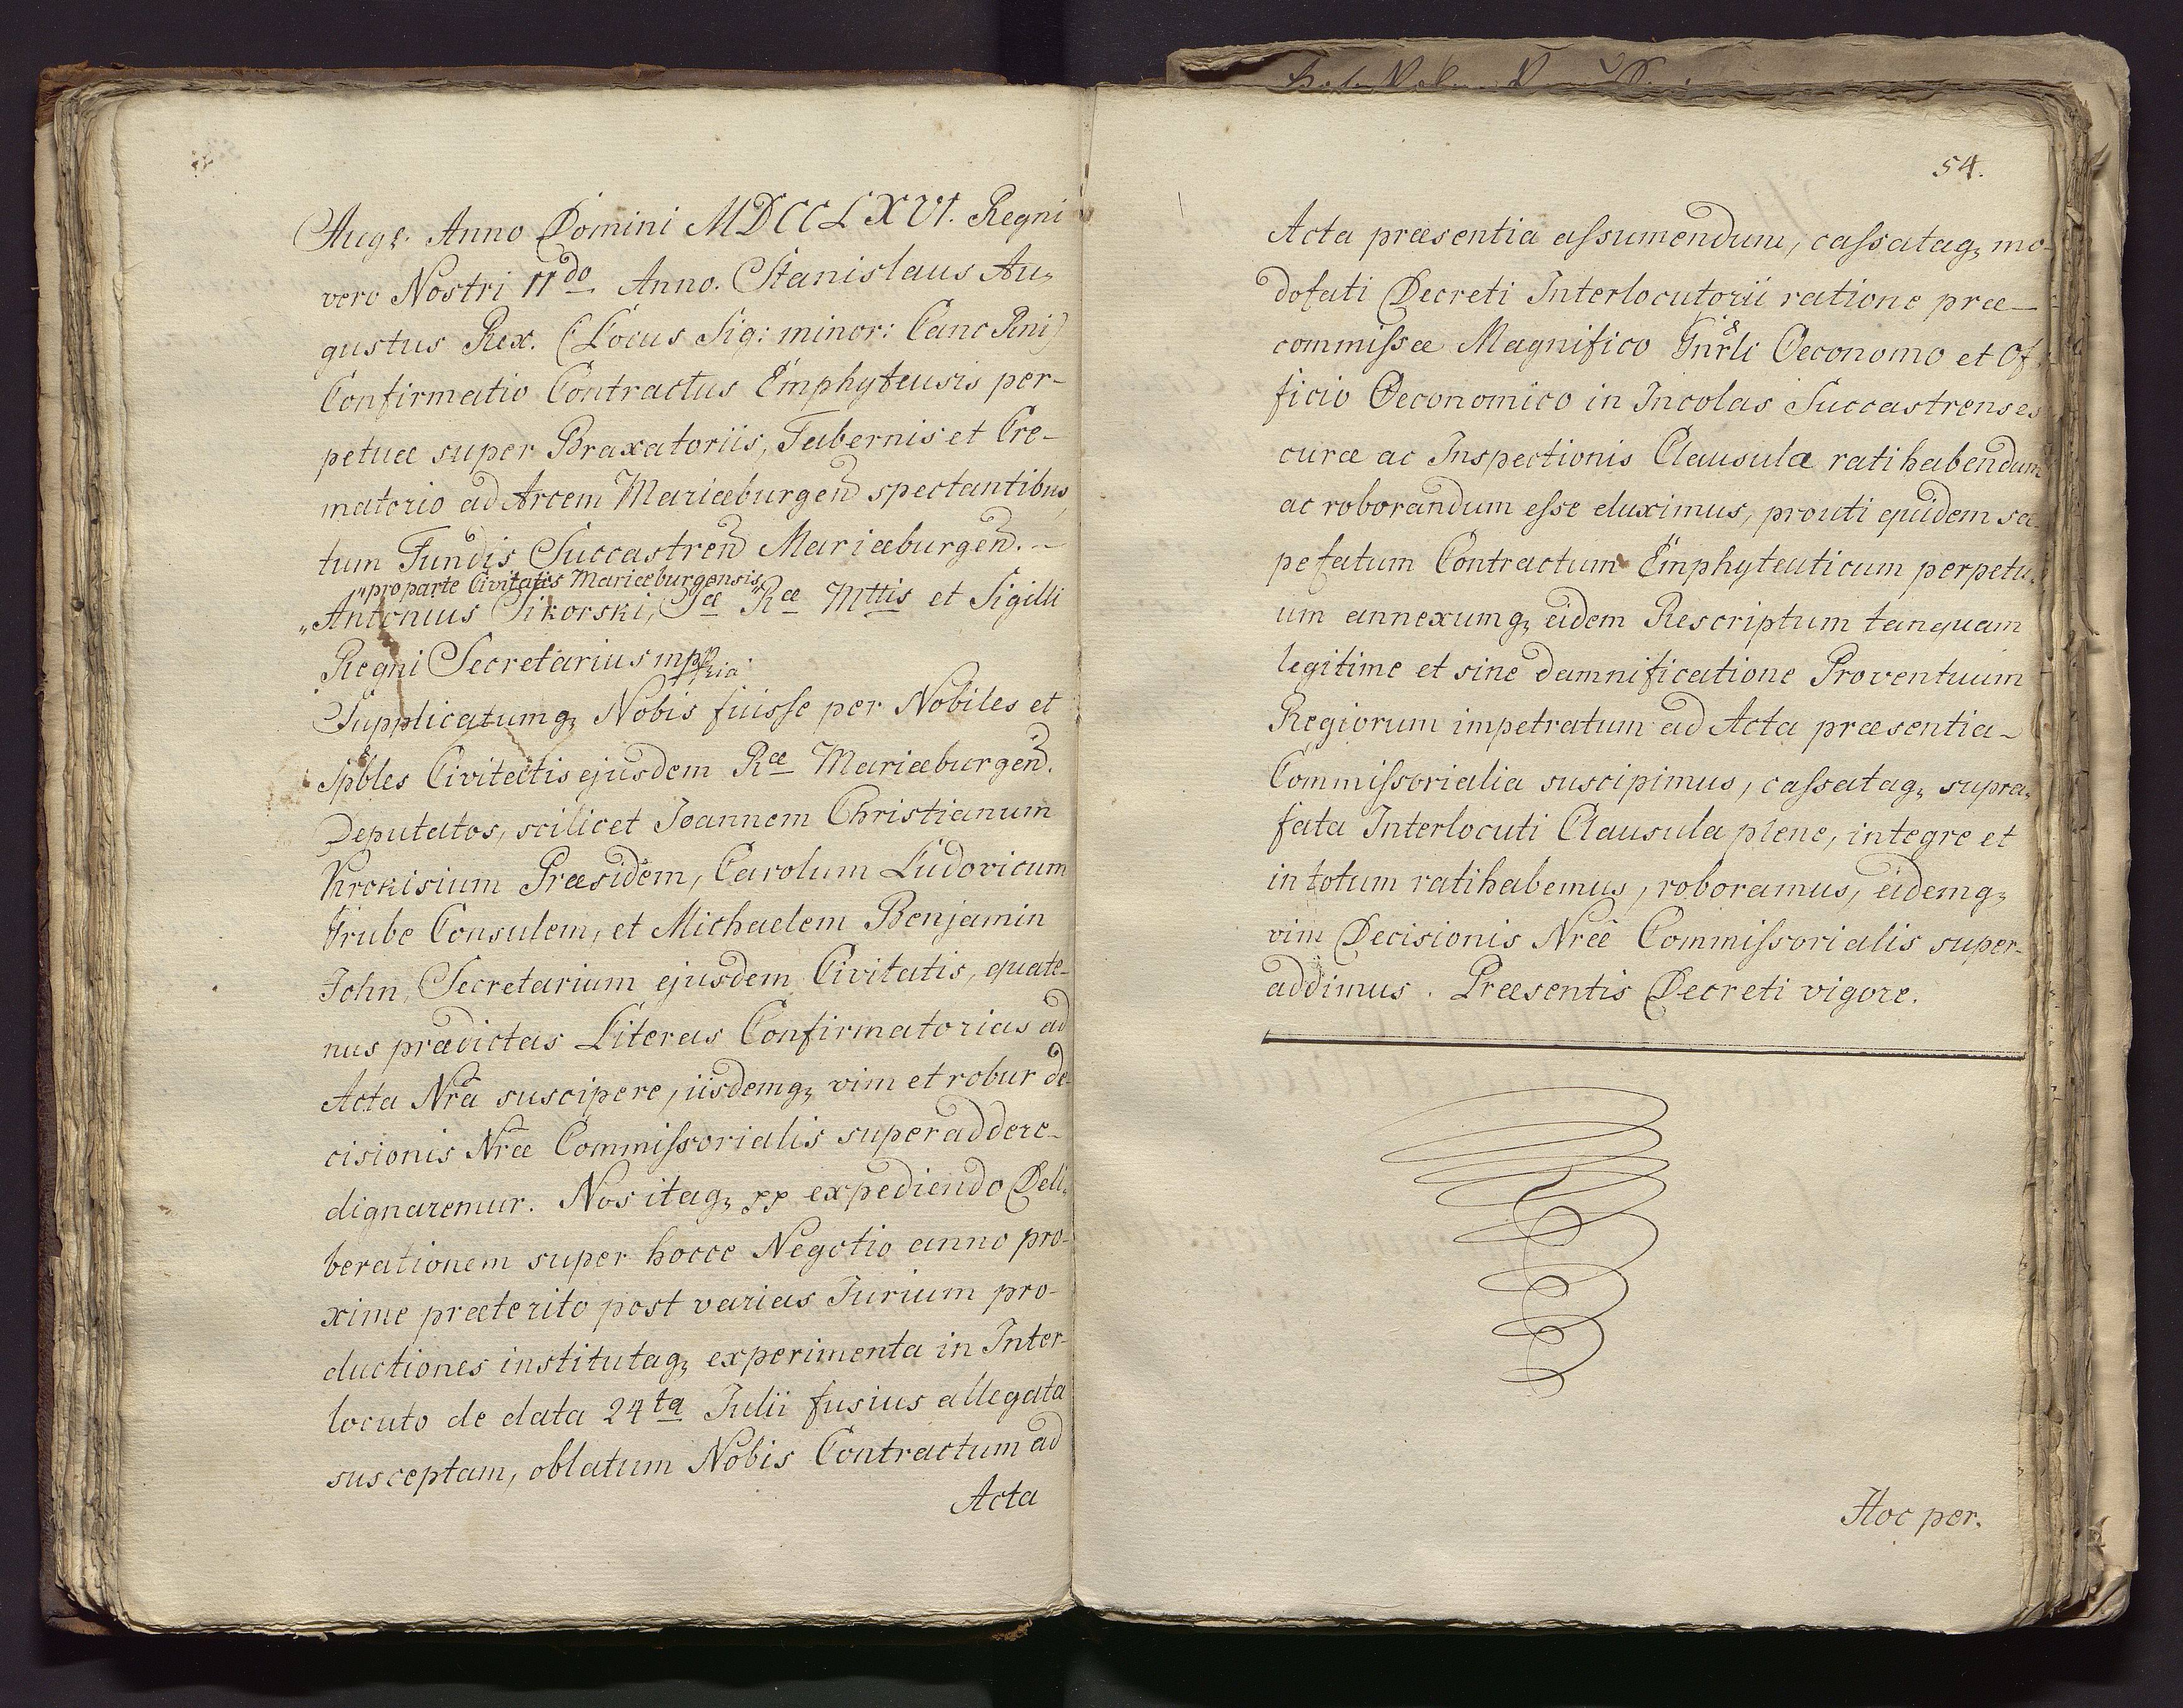 Augs. Anno Domini MDCCLXVI. Regni
vero Nostri IIdo Anno. Stanislaus Au-
gustus Rex. (Locus Sig: minor: Canc Rni)
Confirmatio Contractus Emphyteusis per-
petuæ super Braxatoriis, Tabernis et Cre-
matorio ad Arcem Mariæburgen spectantibus,
tum Fundis Succastren Mariæburgen. -
"pro parte Civitatis Mariæburgensis"
"Antonius Sikorski, Sæ Ræ Mttis et Sigilli
Regni Secretarius mppria
Supplicatumq, Nobis fuisse per Nobiles et
Spbles Civitatis ejusdem Ræ Mariæburgen.
Deputatos, scilicet Joannem Christianum
Krokisium Præsidem, Carolum Ludovicum
Grube Consulem, et Michaelem Benjamin
John, Secretarium ejusdem Civitatis, quate-
nus prædictas Literas Confirmatorias ad
Acta Nra suscipere, iisdemq, vim et robur de-
cisionis Nræ Commissorialis superaddere
dignaremur. Nos itaq, expediendo Deli-
berationem super hocce Negotio anno pro-
xime præterito post varias Jurium pro-
ductiones institutaq, experimenta in Inter-
locuto de data 24ta Julii fusius allegata
susceptam, oblatum Nobis Contractum ad
Acta
54.
Acta præsentia assumendum, cassataq, mo-
dofati Decreti Interlocutorii ratione præ-
commissæ Magnifico Gnrli Oeconomo et Of-
ficio Oeconomico in Incolas Succastrenses
curæ ac Inspectionis Clausula ratihabendum
ac roborandum esse duximus, prouti quidem sæ-
pefatum Contractum Emphyteuticum perpetu-
um annexumq, eidem Rescriptum tanquam
legitime et sine damnificatione Proventuum
Regiorum impetratum ad Acta præsentia
Commissorialia suscipimus, cassataq, supra-
fata Interlocuti Clausula plene, integre et
in totum ratihabemus, roboramus, eidemq,
vim Decisionis Nræ Commissorialis super-
addimus. Præsentis Decreti vigore.
Hoc per.